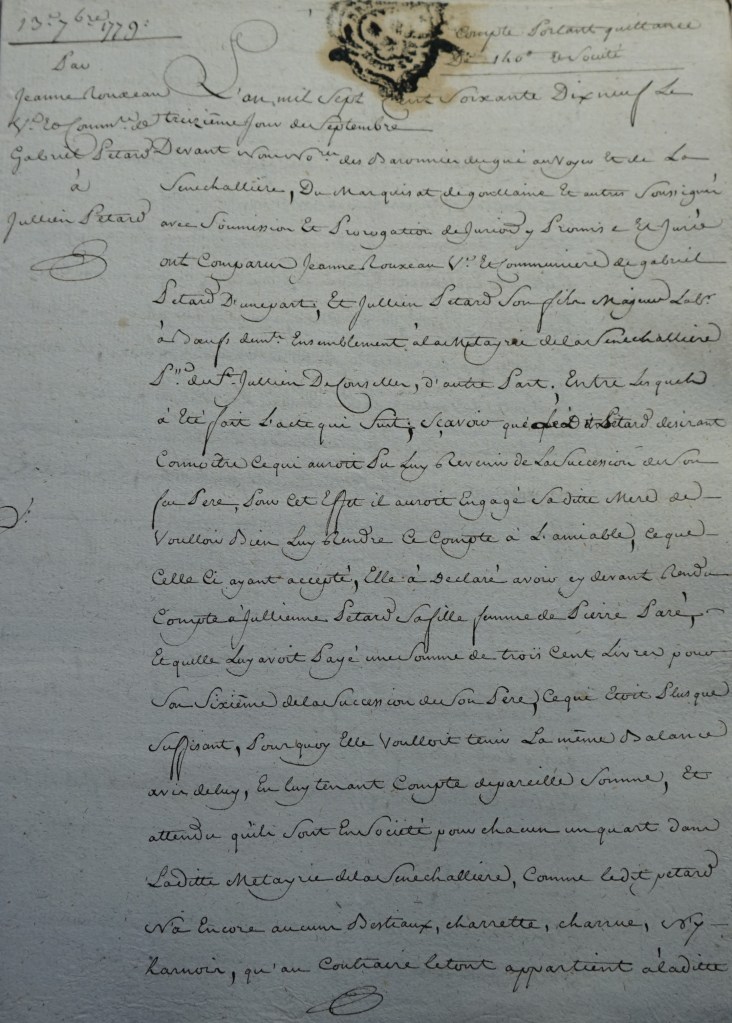 13e. 7bre. 1779.
Compte Portant quittance
De 140# & Société
Par
Jeanne Rouxeau
Ve. Et Commre. de
Gabriel Petard
à
Jullien Petard
L'an mil Sept Cent Soixante Dixneuf Le
treizième Jour de Septembre
Devant Nous Nores. des Baronnies du gué au Voyer Et de La
Senechallière, Du Marquisat de goullaine Et autres Soussignés
avec Soumission Et Prorogation de Jurion. y Promise Et Jurée
ont Comparu Jeanne Rouxeau Ve. Et Communiere de gabriel
Petard D'unepart; Et Jullien Petard Son fils Majeur Labr.
à Bœufs demts. Ensemblement à la Metayrie de la Senechallière
Psse. de St. Jullien De Conselles, d'autre Part; Entre Lesquels
à Eté fait L'acte qui Suit; Sçavoir que Le Dit Petard desirant
Connoitre Ce qui auroit Pu Luy Revenir de La Succession de Son
feu Pere, Pour Cet Effet il auroit Engagé Saditte Mere de
Voulloir Bien Luy Rendre Ce Compte à L'amiable, Ce que
Celle Ci ayant accepté, Elle à Declaré avoir cy devant Rendu
Compte à Jullienne Petard Sa fille femme de Pierre Paré,
Et quelle Luy avoit Payé une Somme de trois Cent Livres pour
Son Sixième de la Succession de Son Pere, Ce que Etoit Plus que
Suffisant, Pourquoy Elle Voulloit tenir La même Balance
avis de luy, En luy tenant Compte de pareille Somme, Et
attendu qu'ils Sont En Société pour chacun un quart dans
Laditte Metayrie de la Senechallière, Comme ledit petard
N'a Encore aucuns Bestiaux, charrette, charrue, Ny
harnois, qu'au Contraire le tout appartient à laditte